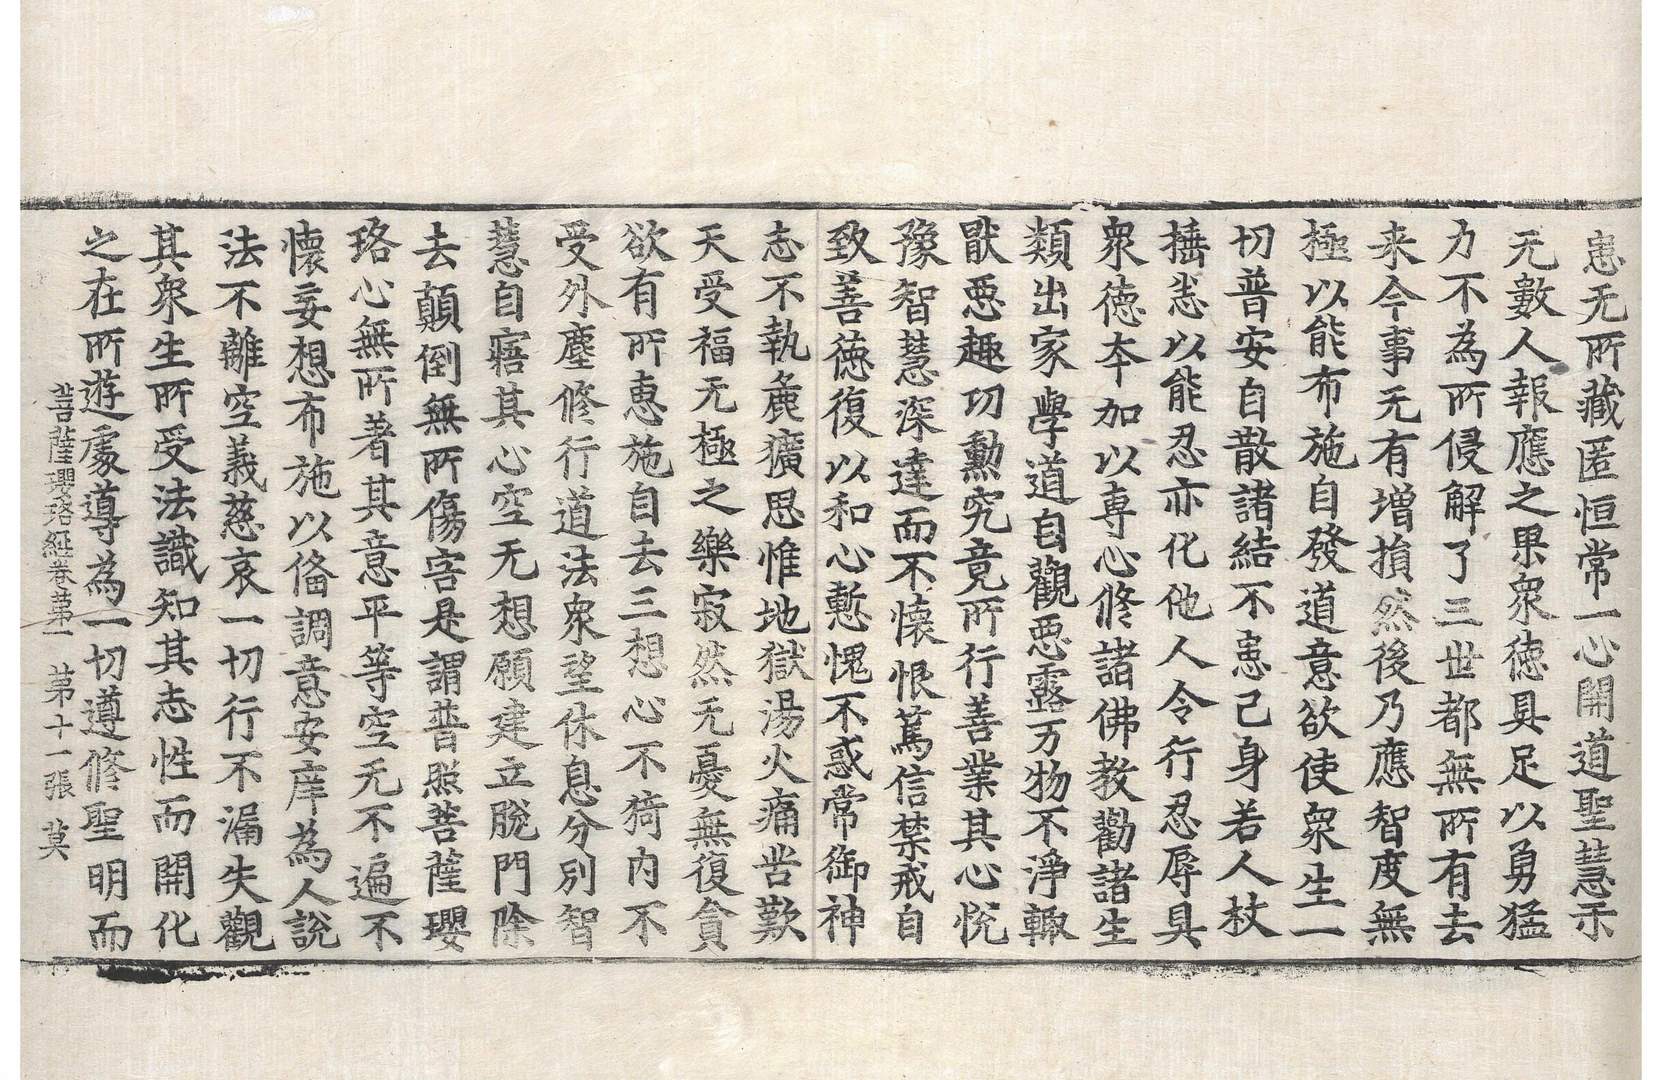 恚无所藏匿恒常一心開道聖慧示
无數人報應之果衆徳具足以勇猛
力不為所侵解了三世都無所有去
来今事无有增損然後乃應智度無
極以能布施自發道意欲使衆生一
切普安自散諸結不恚己身若人杖
捶恚以能忍亦化他人令行忍辱具
衆徳夲加以専心修諸佛教勸諸生
類出家學道自觀惡露万物不淨輙
猒惡趣功勲究竟所行善業其心恱
豫智慧深達而不懷恨篤信禁戒自
致善徳復以和心慙愧不惑常御神
志不執麁獷思惟地獄湯火痛苦歎
天受福无極之樂寂然无憂無復貪
欲有所惠施自去三想心不猗内不
受外塵修行道法衆望休息分別智
慧自寤其心空无想願建立脫門除
去顛倒無所傷害是謂普照菩薩瓔
珞心無所著其意平等空无不遍不
懷妄想布施以俻調意安庠為人說
法不離空義慈哀一切行不漏失觀
其衆生所受法識知其志性而開化
之在所遊處導為一切遵修聖明而
菩薩瓔珞經卷苐一　苐十一張　莫